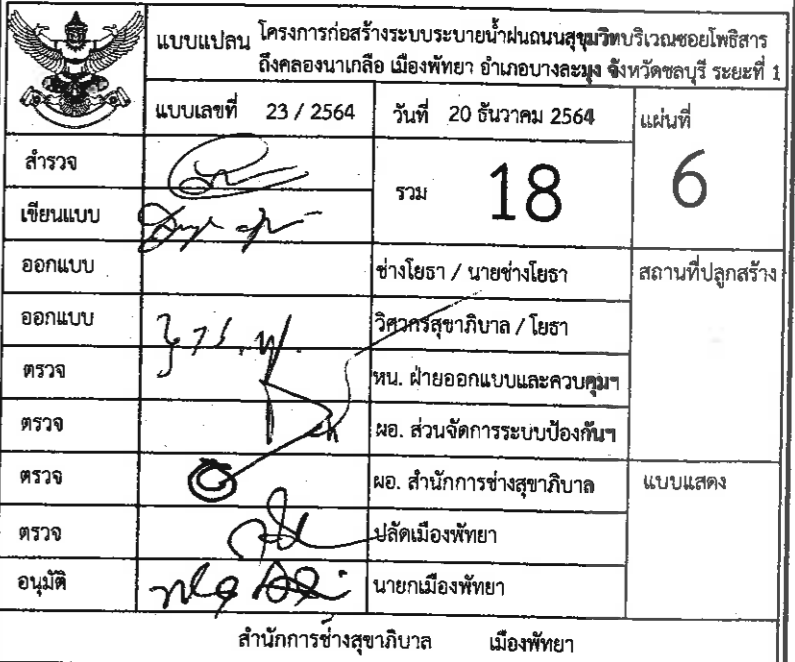 แบบแปลน โครงการก่อสร้างระบบระบายน้ำฝนถนนสุขุมวิทบริเวณซอยโพธิสาร
ถึงคลองนาเกลือ เมืองพัทยา อำเภอบางละมุง จังหวัดชลบุรี ระยะที่ 1
แบบเลขที่ 23 / 2564 วันที่ 20 ธันวาคม 2564 แผ่นที่
สำรวจ รวม 18 6
เขียนแบบ
ออกแบบ ช่างโยธา / นายช่างโยธา สถานที่ปลูกสร้าง
ออกแบบ วิศวกรสุขาภิบาล / โยธา
ตรวจ หน. ฝ่ายออกแบบและควบคุมฯ
ตรวจ ผอ. ส่วนจัดการระบบป้องกันฯ
ตรวจ ผอ. สำนักการช่างสุขาภิบาล แบบแสดง
ตรวจ ปลัดเมืองพัทยา
อนุมัติ นายกเมืองพัทยา
สำนักการช่างสุขาภิบาล เมืองพัทยา